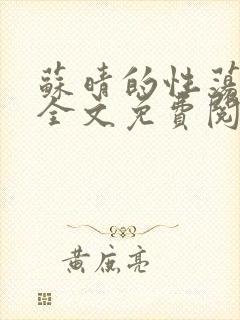 蘇晴的性蕩
全文免費閱
黃庶亮